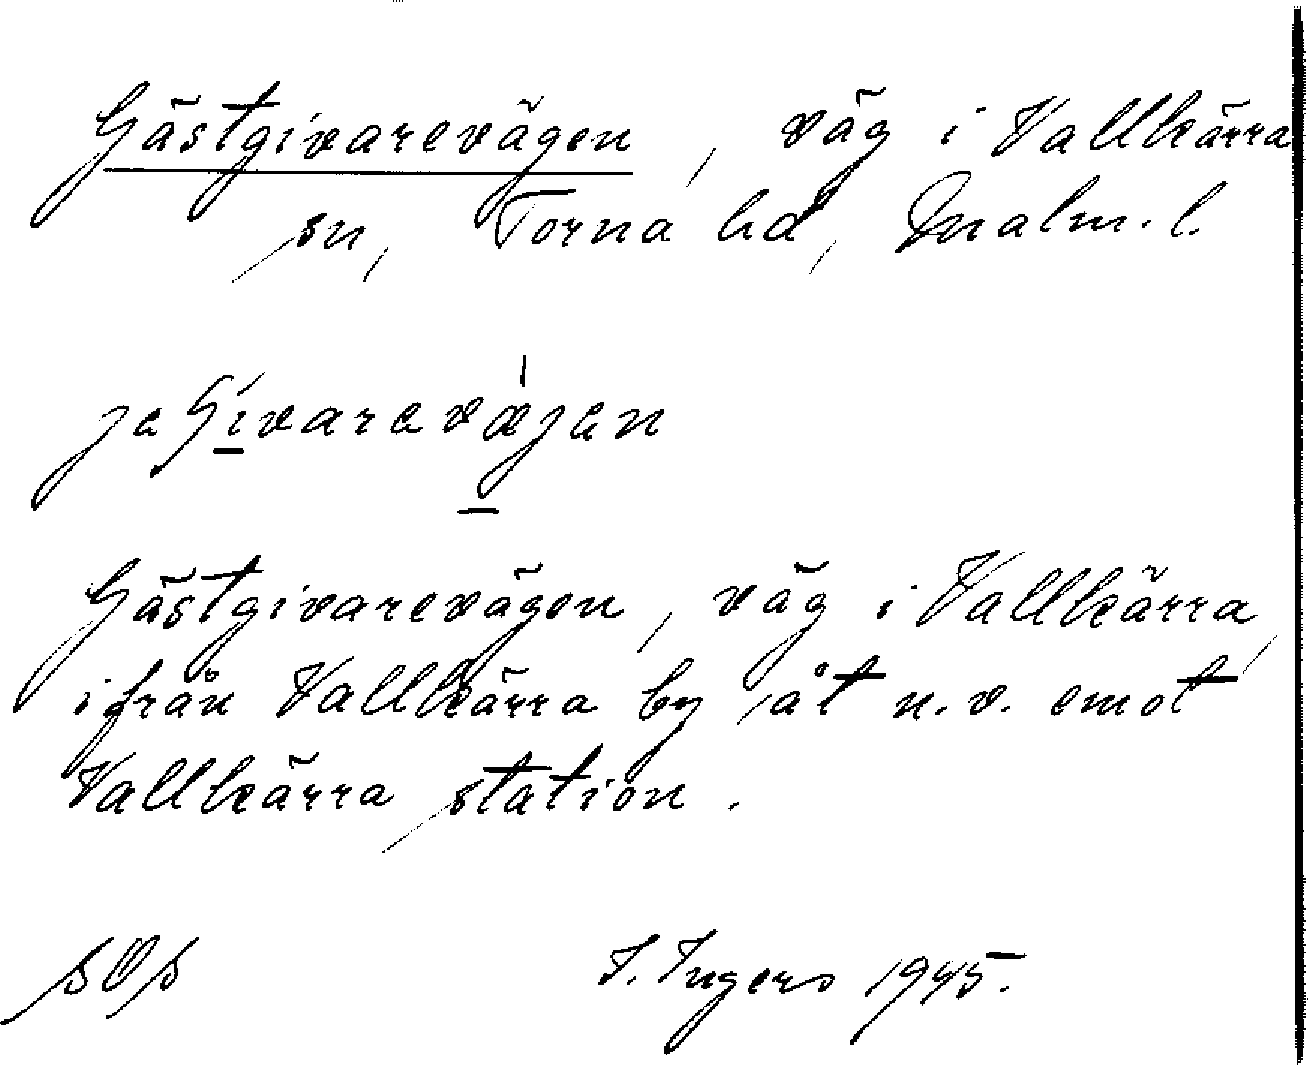 Gästgivarevägen, väg i Vallkärra
sn, Torna hd, Malm. l.
jeʃivarevæjen
Gästgivarevägen, väg i Vallkärra,
ifrån Vallkärra by åt n.v. emot
Vallkärra station.
I. Ingers 1945.